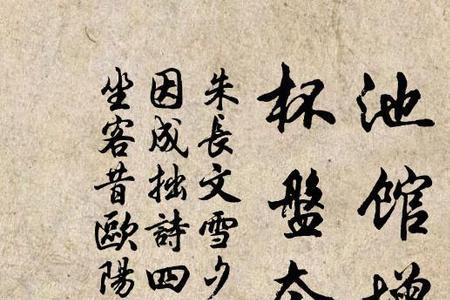 池馆增
杯盤
朱長文雪夕
因成拙詩四
坐客昔歐陽